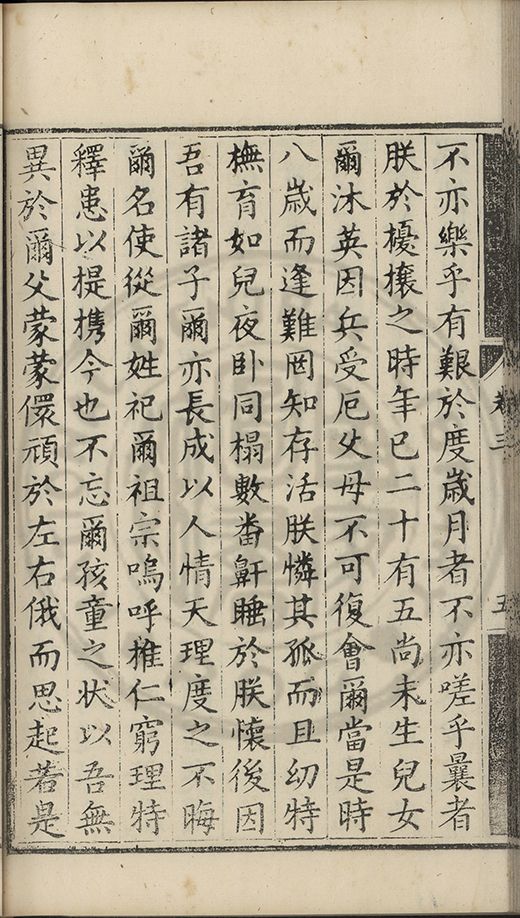 不亦樂乎有艱於度歲月者不亦嗟乎曩者
朕於擾攘之時年已二十有五尚未生兒女
爾沐英因兵受厄父母不可復會爾當是時
八歲而逢難罔知存活朕憐其孤而且幼特
撫育如兒夜卧同榻數番鼾睡於朕懷後因
吾有諸子爾亦長成以人情天理度之不晦
爾名使從爾姓祀爾祖宗嗚呼推仁窮理特
釋患以提攜今也不忘爾孩童之狀以吾無
異於爾父蒙蒙儇頑於左右俄而思起若是
卷三
五